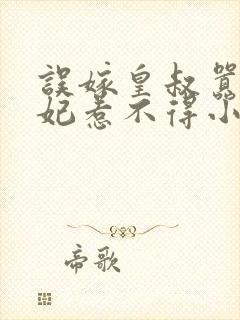 誤嫁皇叔
妃惹不得小
帝歌